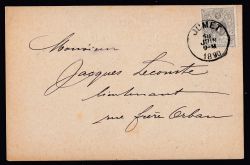 JUMET
JUIN
9-M
1890
Monsieur
Jacques Lecomte
lieutenant
rue frère Orban